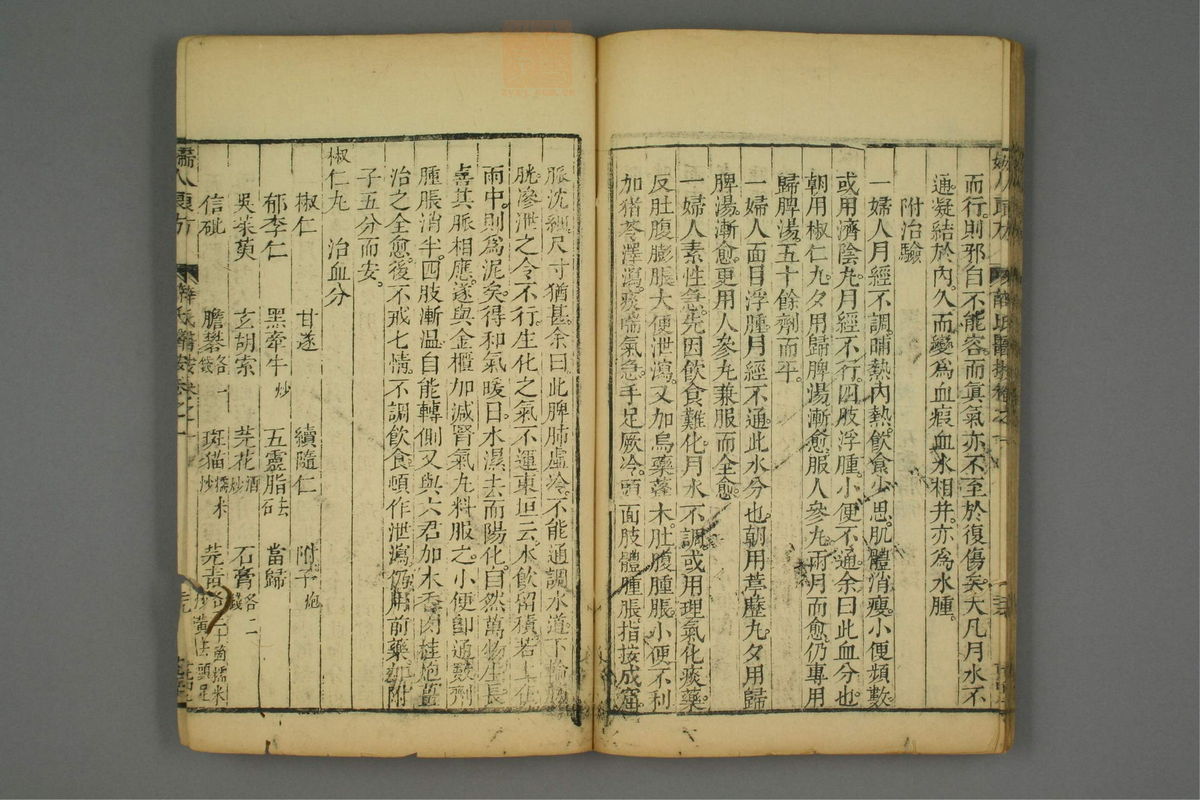 而行則邪自不能容而真氣亦不至於復傷矣大凡月水不
通凝結於內久而變為血瘕血水相并亦為水腫。
附治驗
一婦人月經不調。晡熱內熱。飲食少思。肌體消瘦。小便頻數。
或用濟陰丸。月經不行。四肢浮腫。小便不通。余曰此血分也。
朝用椒仁丸。夕用歸脾湯漸愈。服人參丸。兩月而愈。仍專用
歸脾湯五十餘劑而平。
一婦人面目浮腫。月經不通。此水分也。朝用葶藶丸。夕用歸
脾湯。漸愈。更用人參丸兼服而全愈。
一婦人素性急。先因飲食難化。月水不調。或用理氣化痰藥。
反肚腹膨脹。大便泄瀉。又加烏藥蓬朮。肚腹腫脹。小便不利
加猪苓澤瀉。痰喘氣急。手足厥冷。頭面肢體腫脹。指按成窟。
脈沈細。尺寸猶甚。余曰。此脾肺虛冷。不能通調水道下輸膀
胱。滲泄之令不行。生化之氣不運。東垣云。水飲留積。若土在
雨中。則為泥矣。得和氣暖日。水濕去而陽化。自然萬物生長
喜其脈相應。遂與金匱加減腎氣丸料服之。小便即通。數劑
腫脹消半。四肢漸溫。自能轉側。又與六君加木香肉桂炮薑
治之全愈。後不戒七情。不調飲食。頓作泄瀉。仍用前藥加附
子五分而安。
椒仁丸 治血分
椒仁 甘遂 續隨仁 附子炮
郁李仁 黑牽牛炒 五靈脂去石 當歸
吳茱萸 玄胡索 芫花酒炒 石膏各二錢
信砒 膽礬各一錢 斑猫糯米炒 芫青各二十箇糯米炒黃去頭足
婦人良方 薛氏醫按卷之一